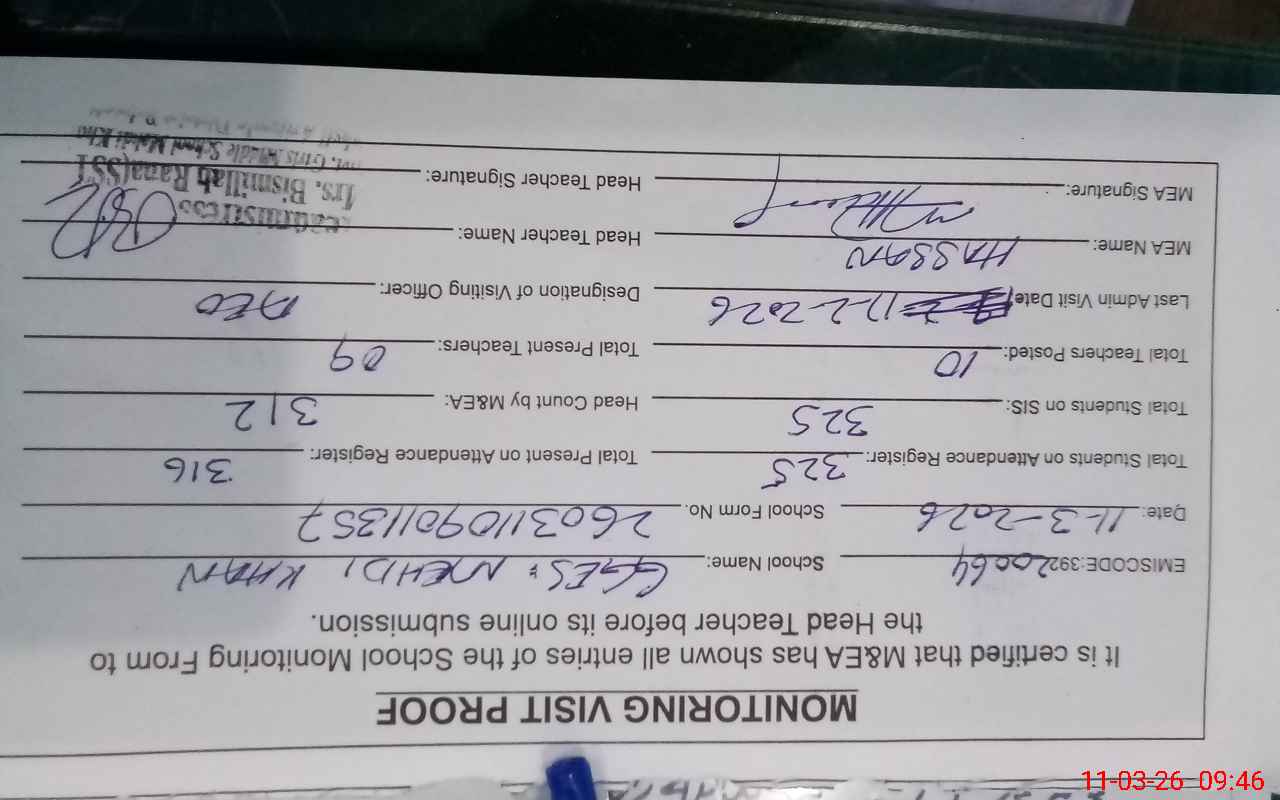 MONITORING VISIT PROOF
It is certified that M&EA has shown all entries of the School Monitoring From to
the Head Teacher before its online submission.
EMISCODE:392 20064 School Name: GGES: MEHDI KHAN
Date: 11-3-2026 School Form No. 26031109011357
Total Students on Attendance Register: 325 Total Present on Attendance Register: 316
Total Students on SIS: 325 Head Count by M&EA: 312
Total Teachers Posted: 10 Total Present Teachers: 09
Last Admin Visit Date: 11-2-2026 Designation of Visiting Officer: AEO
MEA Name: HASSAN Head Teacher Name:
MEA Signature: Head Teacher Signature:
Mrs. Bismillah Rana(SST
Girls Middle School
11-03-26 09:46